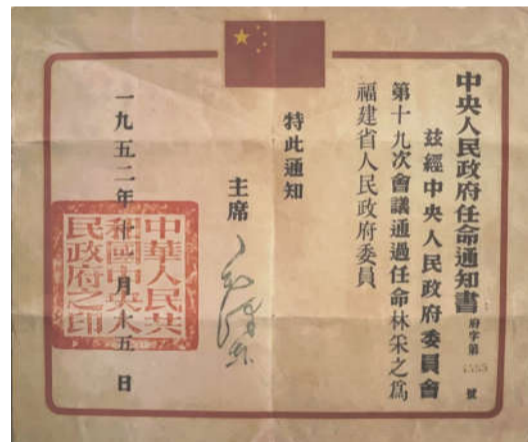 中央人民政府任命通知書
府字第 4555 號
兹經中央人民政府委員會
第十九次會議通過任命林采之爲
福建省人民政府委員
特此通知
主席 毛澤東
一九五二年十一月十五日
中華人民共
和國中央人
民政府之印